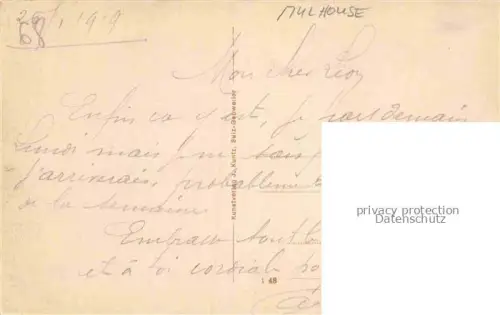 MULHOUSE
1919
68
Mon cher Léon
Enfin ça y est, je pars demain
Lundi mais je ne sais
j'arriverais, probablement
de la semaine
Embrasse tout
et à toi cordial
Kunstverlag J. Kuntz, Sulz-Gebweiler
48
privacy protection
Datenschutz